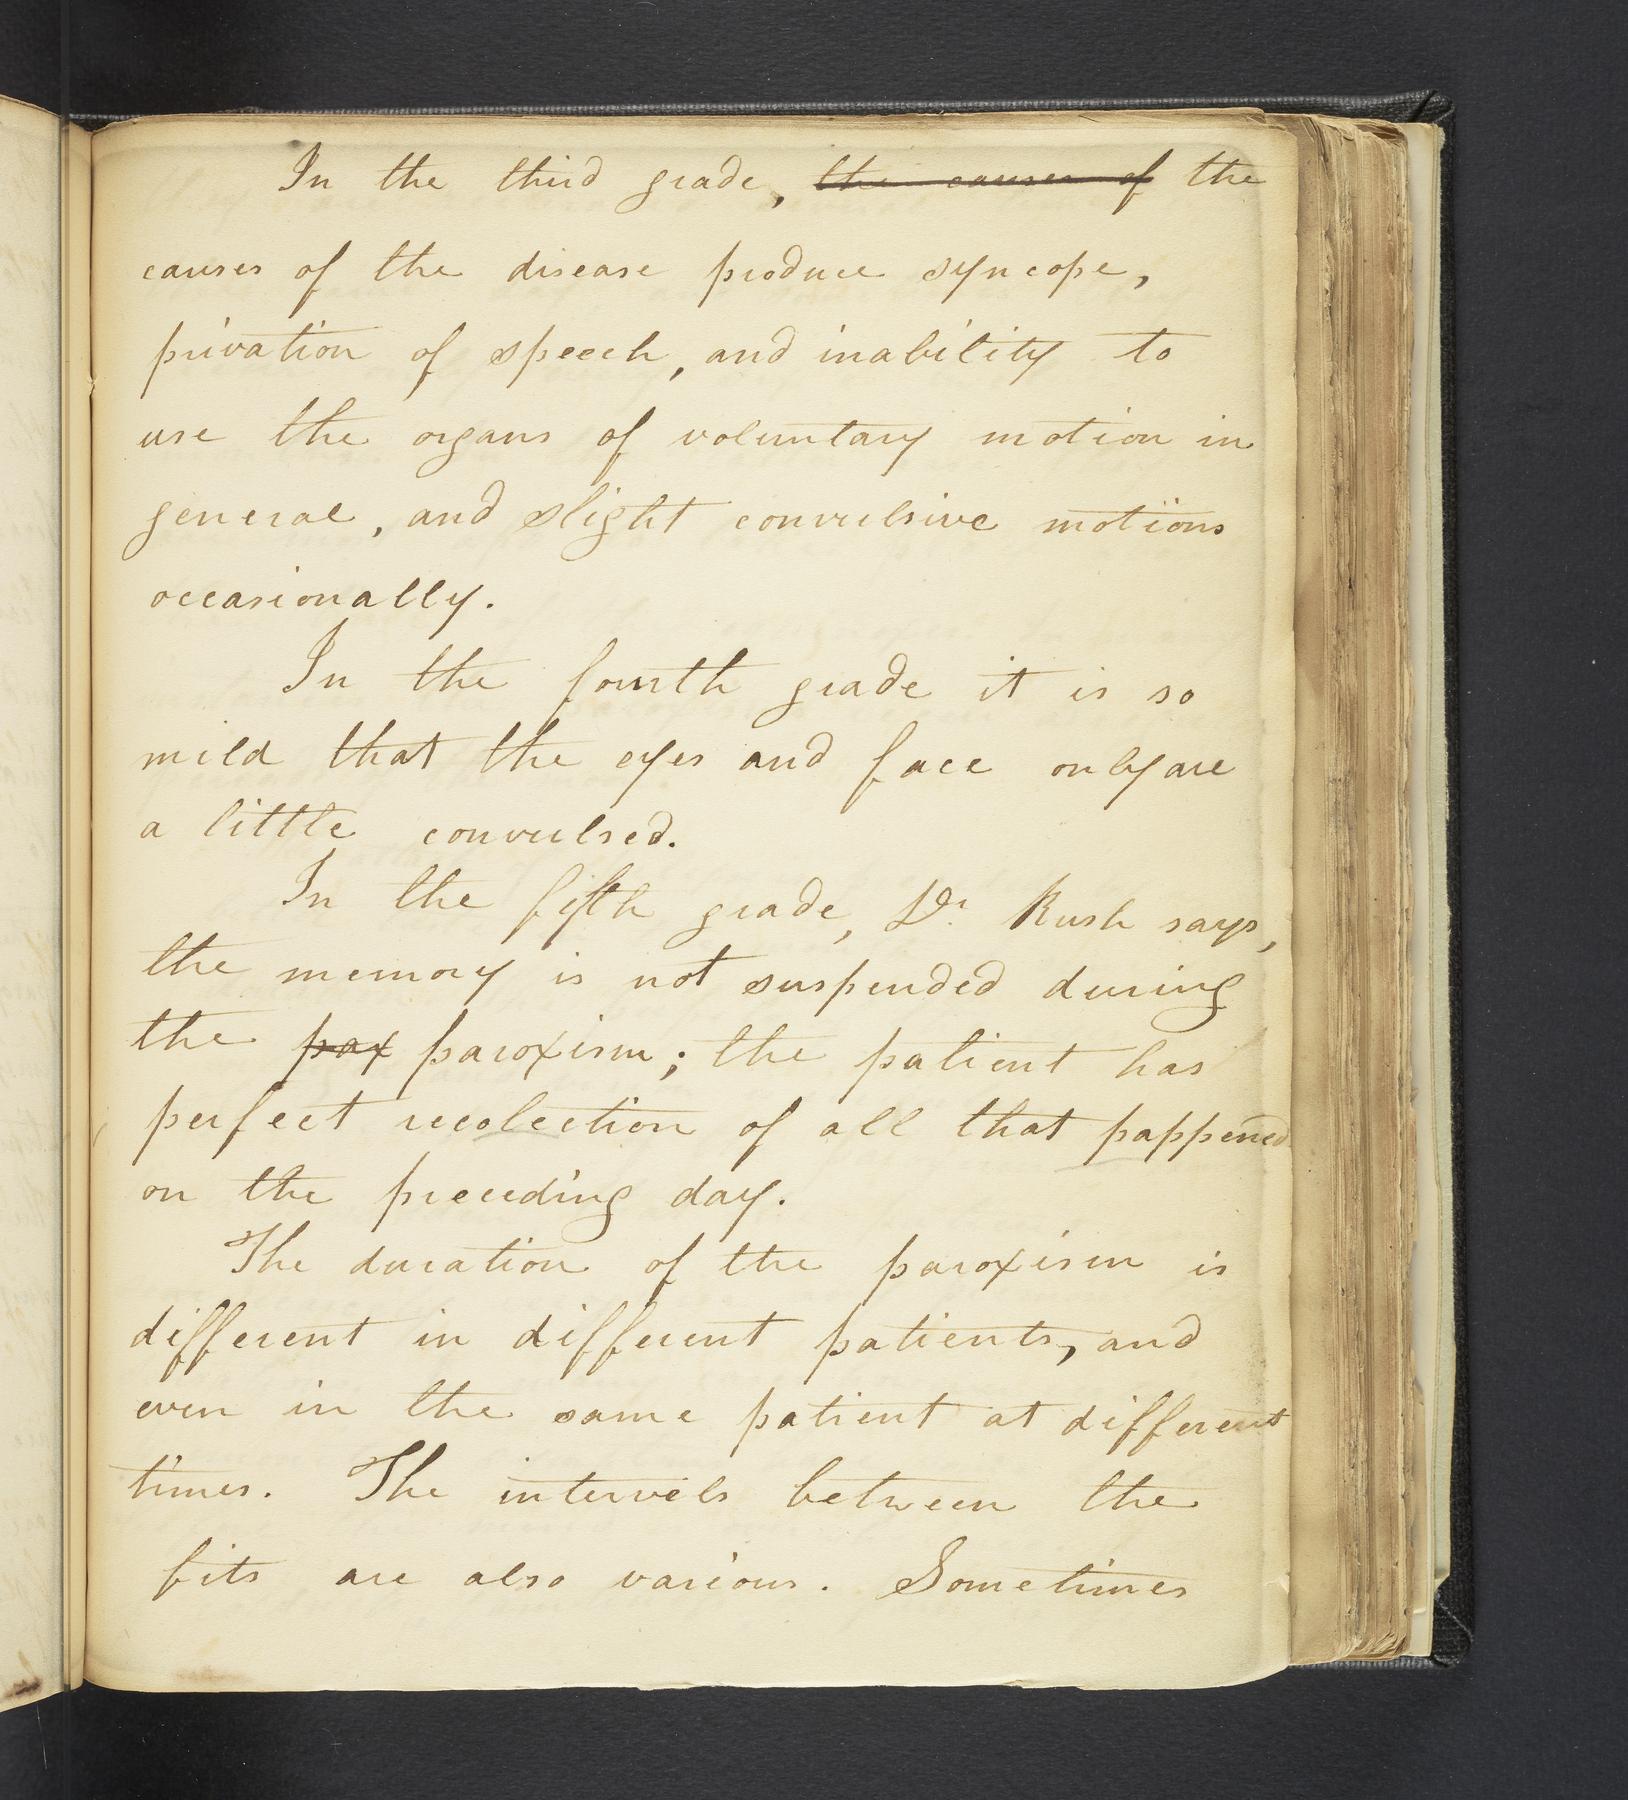 In the third grade, the causes of the
causes of the disease produce syncope,
privation of speech, and inability to
use the organs of voluntary motion in
general, and slight convulsive motions
occasionally.
In the fourth grade it is so
mild that the eyes and face only are
a little convulsed.
In the fifth grade, Dr Rush says,
the memory is not suspended during
the pax paroxism; the patient has
perfect recolection of all that pappened
on the preceeding day.
The duration of the paroxism is
different in different patients, and
even in the same patient at different
times. The intervels between the
fits are also various. Sometimes